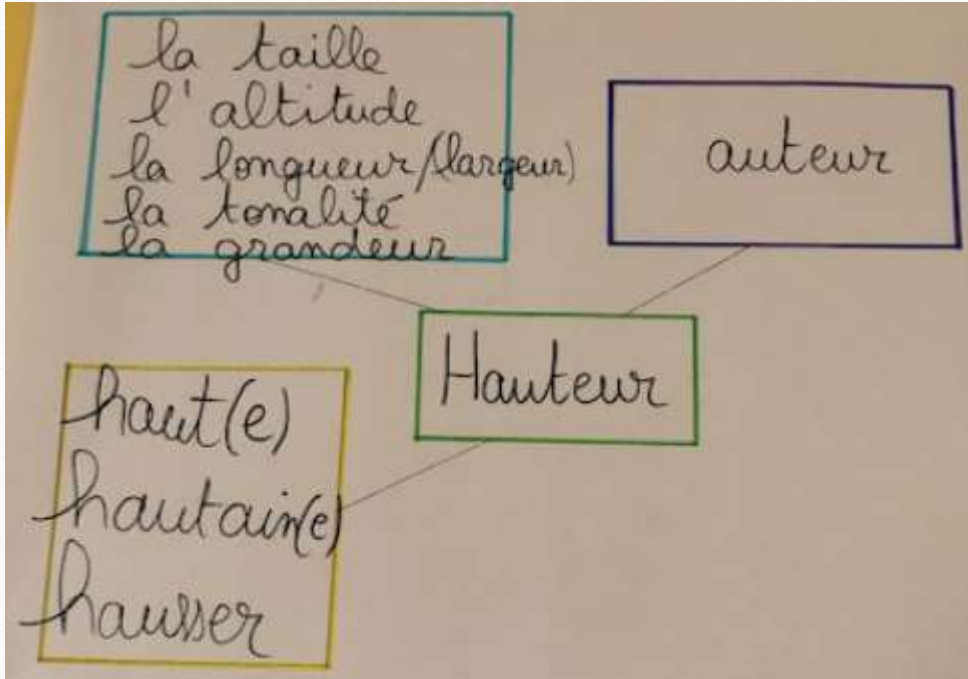 la taille
l'altitude
la longueur/(largeur)
la tonalité
la grandeur
auteur
Hauteur
haut(e)
hautain(e)
hausser